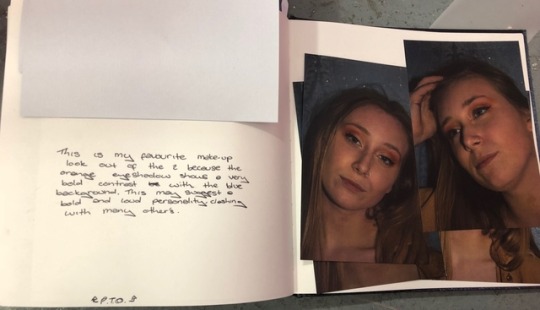 This is my favourite make-up
look out of the 2 because the
orange eyeshadow shows a very
bold contrast with the blue
background. This may suggest a
bold and loud personality clashing
with many others.
P.T.O.